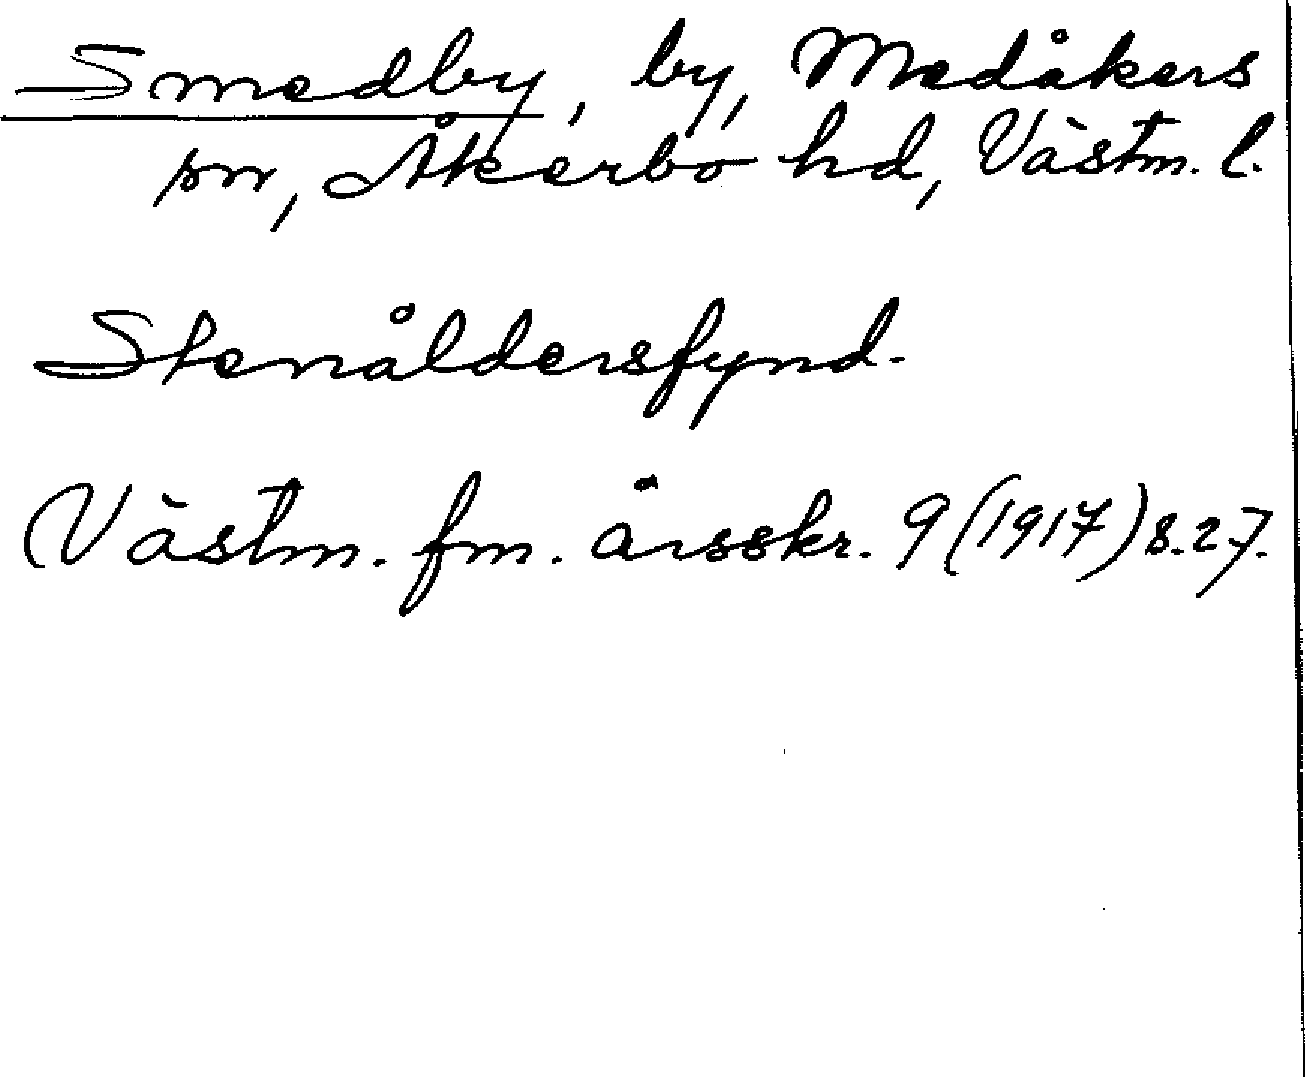 Smedby, by, Medåkers
sn, Åkerbo hd, Västm. l.
Stenåldersfynd.
Västm. fm. årsskr. 9 (1917) s. 27.